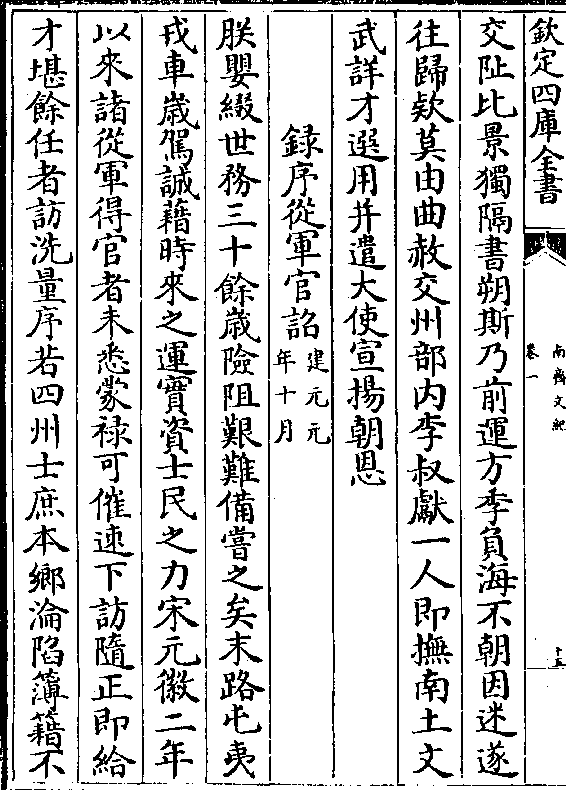 欽定四庫全書
南齊文紀
卷一
十五
交阯比景獨隔書朔斯乃前運方季負海不朝因迷遂
往歸款莫由曲赦交州部内李叔獻一人即撫南土文
武詳才選用并遣大使宣揚朝恩
録序從軍官詔建元元年十月
朕嬰綴世務三十餘歳險阻艱難備嘗之矣末路屯夷
戎車歳駕誠藉時來之運實資士民之力宋元徽二年
以來諸從軍得官者未悉蒙禄可催速下訪隨正即給
才堪餘任者訪洗量序若四州士庶本鄉淪陷簿籍不